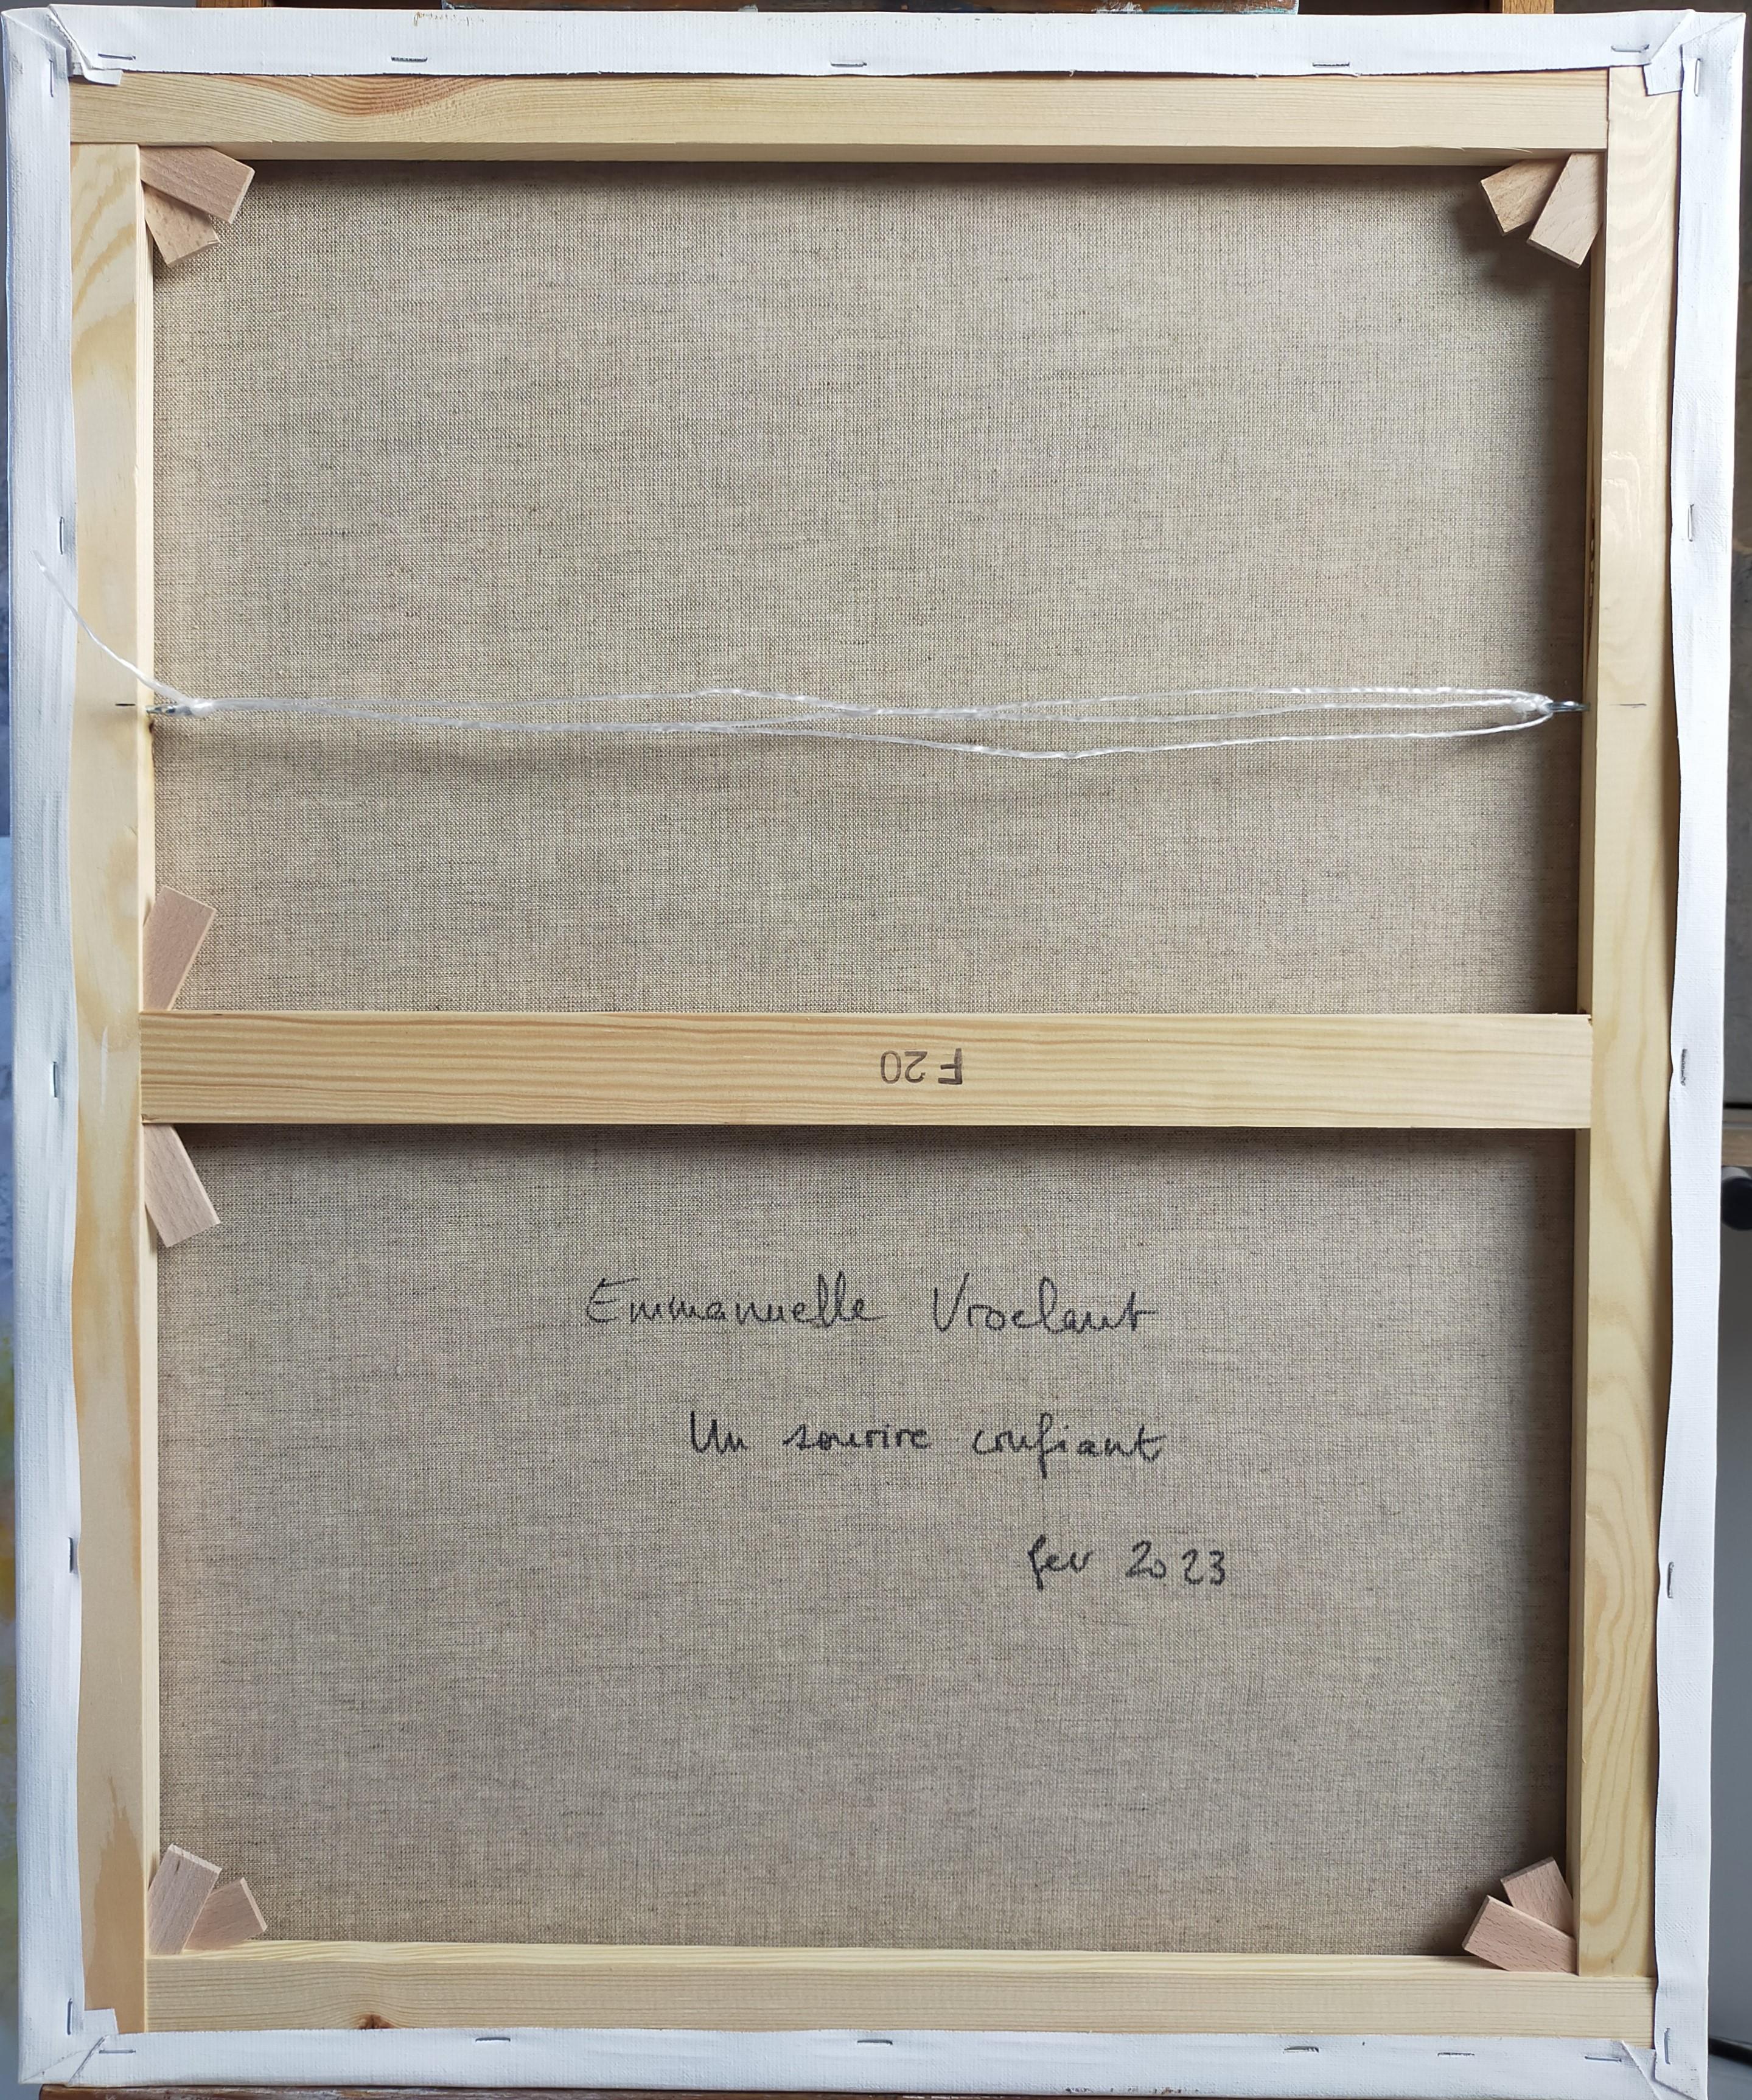 F 20
Emmanuelle Vroclant
Un sourire confiant
fev 2023